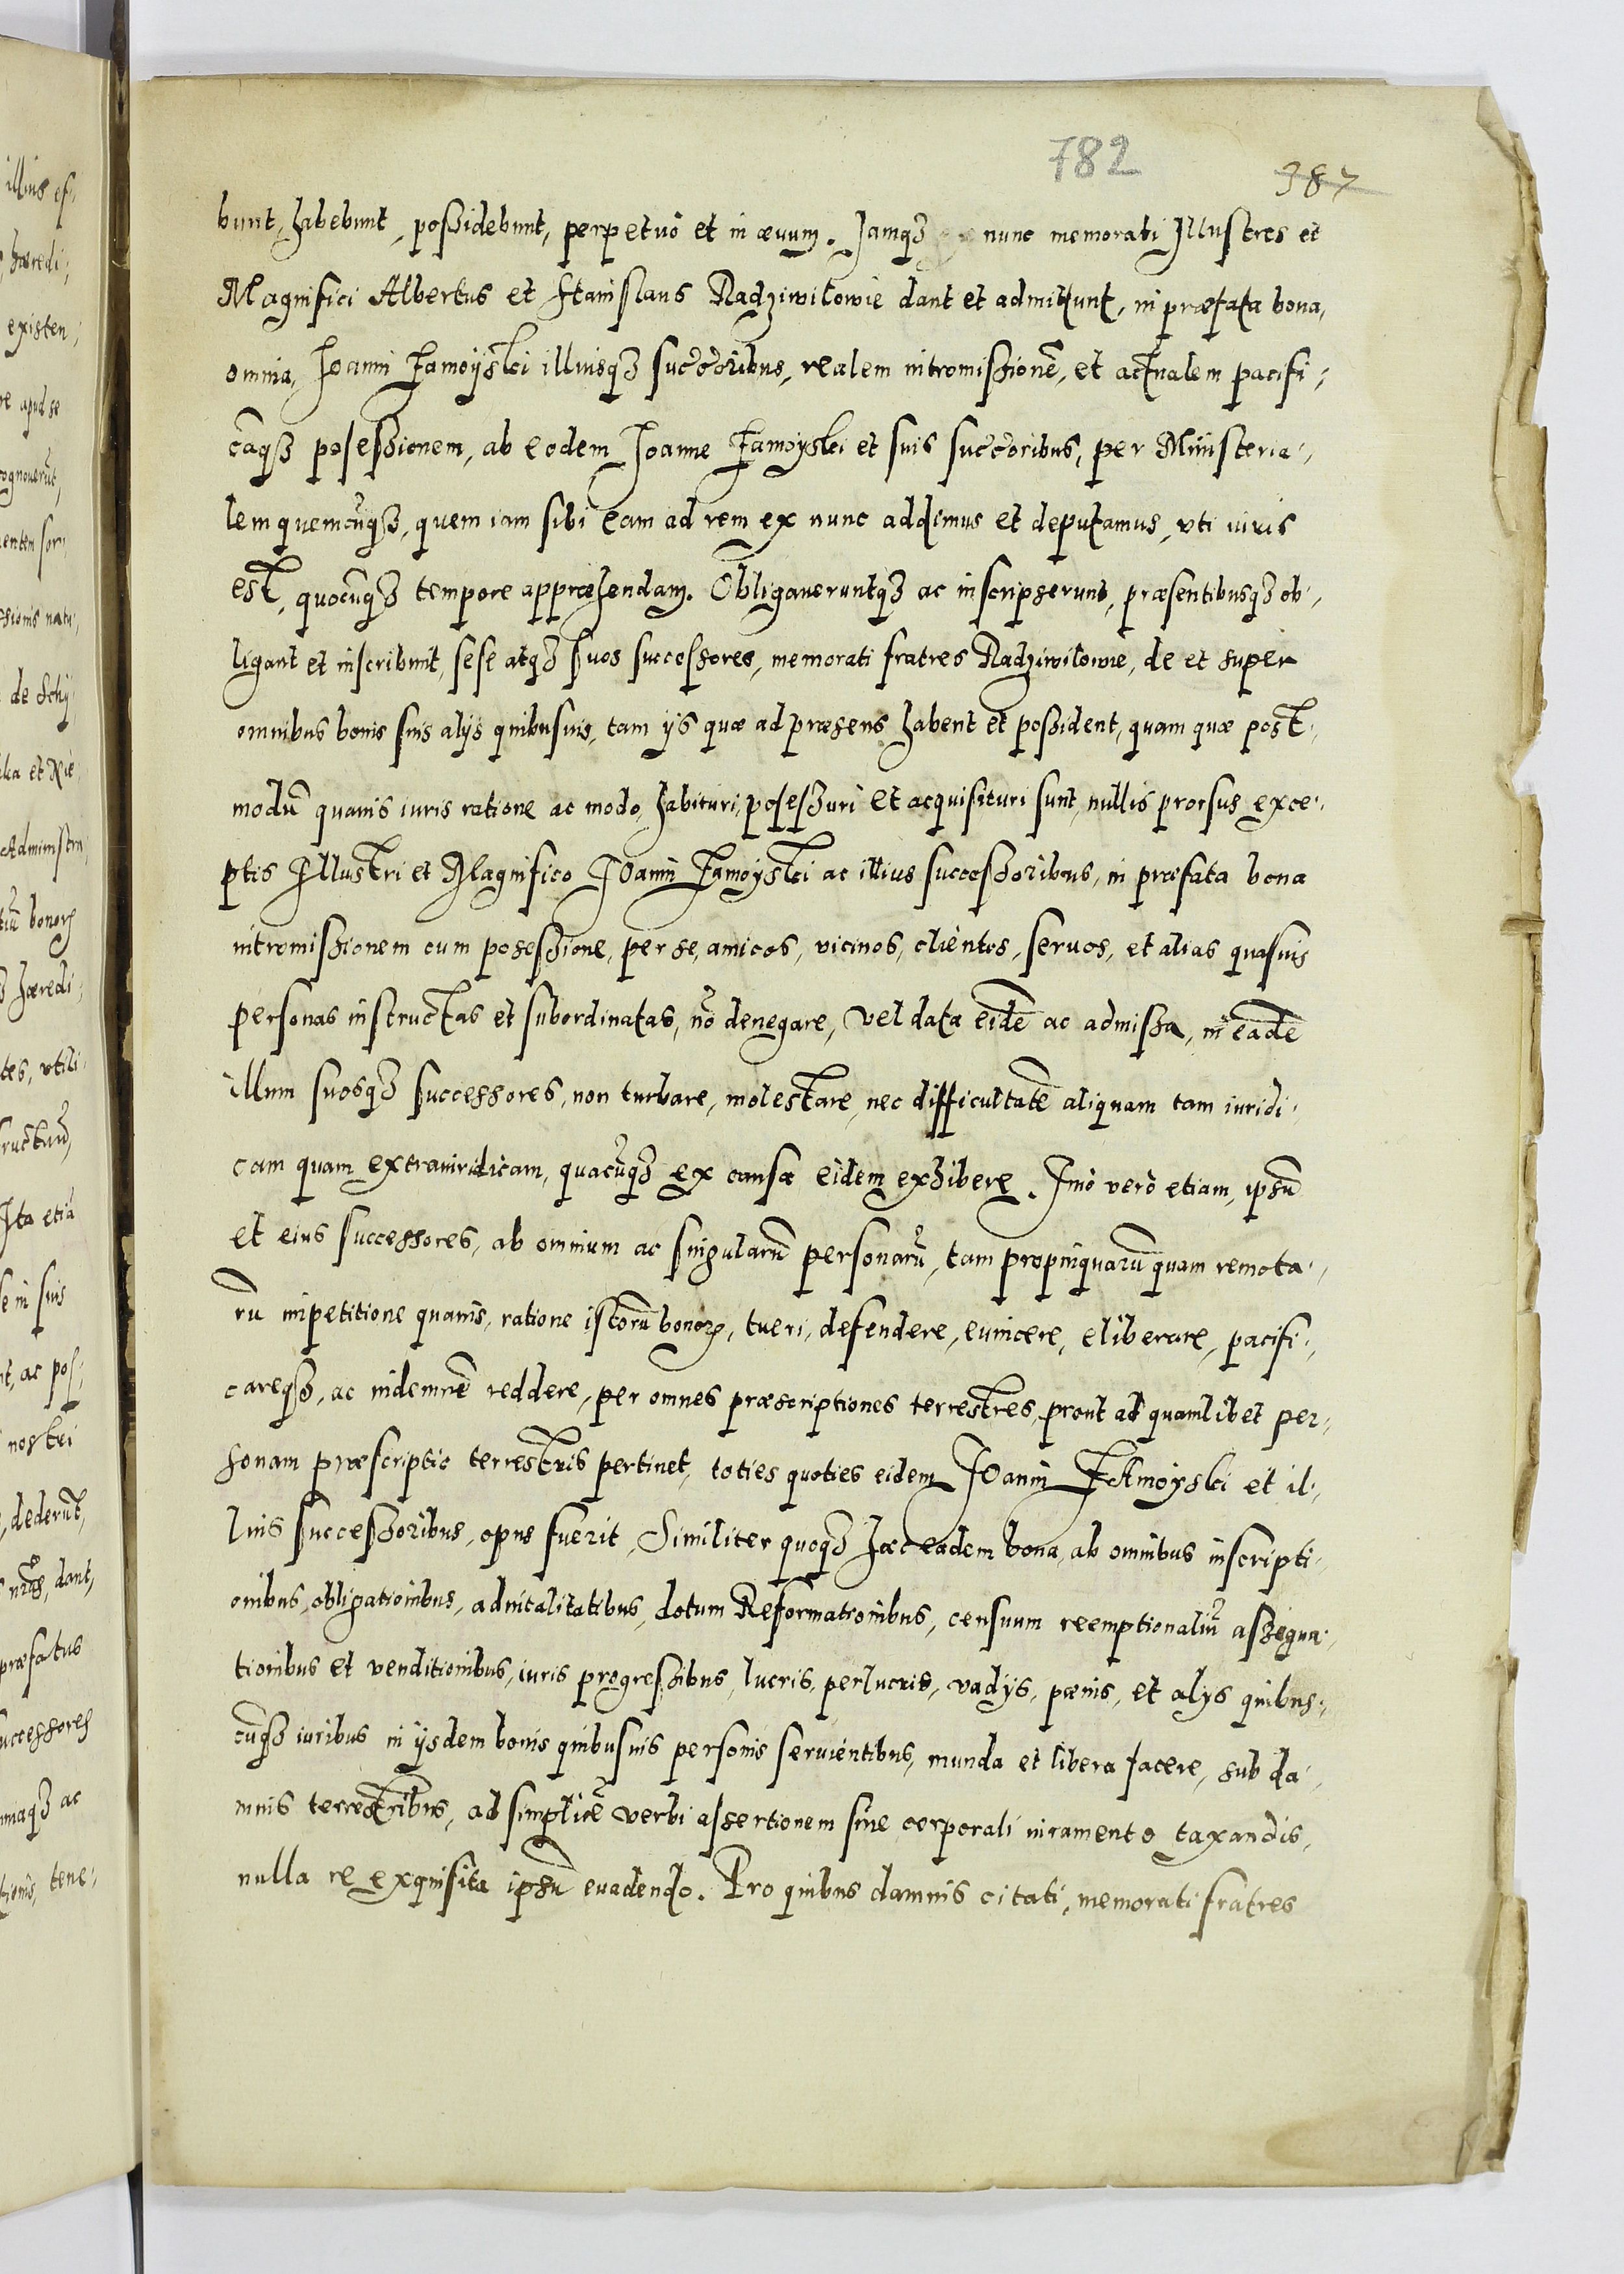 782
387
bunt, habebunt, possidebunt, perpetuò et in æuum. Iamqꝫ nunc memorati Illustres et
Magnifici Albertus et Stanislaus Radziwilowie dant et admittunt, in præfata bona,
omnia, Joanni Zamoÿski illiusqꝫ succ̃oribus, realem intromissionẽ, et actualem pacifi-
cãqꝫ possessionem, ab eodem Joanne Zamoyski et suis succ̃oribus, per Ministeria-
lem quemcũqꝫ, quem iam sibi eam ad rem ex nunc addimus et deputamus, vti iuris
est, quocũqꝫ tempore appræhendam. Obligaueruntqꝫ ac inscripserunt, præsentibusqꝫ ob-
ligant et inscribunt, sese atqꝫ suos successores, memorati fratres Radziwilowie, de et super
omnibus bonis suis alÿs quibusuis, tam ÿs quæ ad præsens habent et possident, quam quæ post-
modũ quauis iuris ratione ac modo, habituri, possessuri et acquisituri sunt, nullis prorsus exce-
ptis Illustri et Magnifico Joanni Zamoyski ac illius successoribus, in præfata bona
intromissionem cum possessione, per se, amicos, vicinos, clientes, seruos, et alias quasuis
personas instructas et subordinatas, nõ denegare, vel data eidẽ ac admissa, in eadẽ
illum suosqꝫ successores, non turbare, molestare, nec difficultatẽ aliquam tam iuridi-
cam quam extraiuridicam, quacũqꝫ ex causa eidem exhibere. Imò verò etiam, ipsũ
et eius successores, ab omnium ac singularũ personarũ, tam propinquarũ quam remota-
rũ inpetitione quauis, ratione istorũ bonorꝝ, tueri, defendere, euincere, eliberare, pacifi-
careqꝫ, ac indemnẽ reddere, per omnes præscriptiones terrestres, prout ad quamlibet per-
sonam præscriptio terrestris pertinet, toties quoties eidem Joanni ZAmoyski et il-
lius successoribus, opus fuerit, Similiter quoqꝫ hæc eadem bona, ab omnibus inscripti-
onibus, obligationibus, aduitalitatibus, dotum Reformationibus, censuum reemptionaliũ assigna-
tionibus et venditionibus, iuris progressibus, lucris, perlucris, vadÿs, pænis, et alÿs quibus-
cũqꝫ iuribus in ÿsdem bonis quibusuis personis seruientibus, munda et libera facere, sub da-
mnis terrestribus, ad simplicẽ verbi assertionem sine corporali iuramento taxandis,
nulla re exquisita ipsũ euadendo. Pro quibus damnis citati, memorati fratres